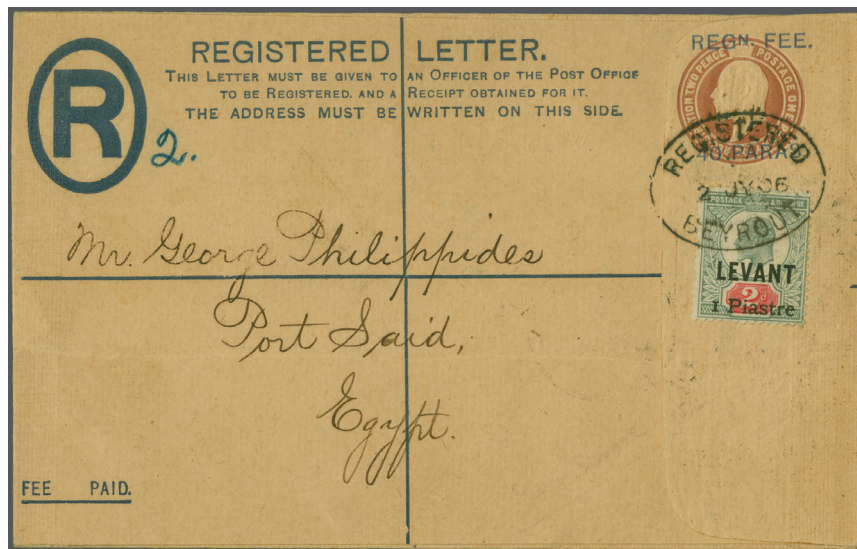 REGISTERED LETTER.
THIS LETTER MUST BE GIVEN TO AN OFFICER OF THE POST OFFICE
TO BE REGISTERED, AND A RECEIPT OBTAINED FOR IT.
THE ADDRESS MUST BE WRITTEN ON THIS SIDE.
R
2.
REGN. FEE.
TWO PENCE POSTAGE ONE
40 PARAS
REGISTERED
2 JY 06
BEYROUT
POSTAGE
LEVANT
2d
1 Piastre
Mr. George Philippides
Port Said,
Egypt.
FEE PAID.